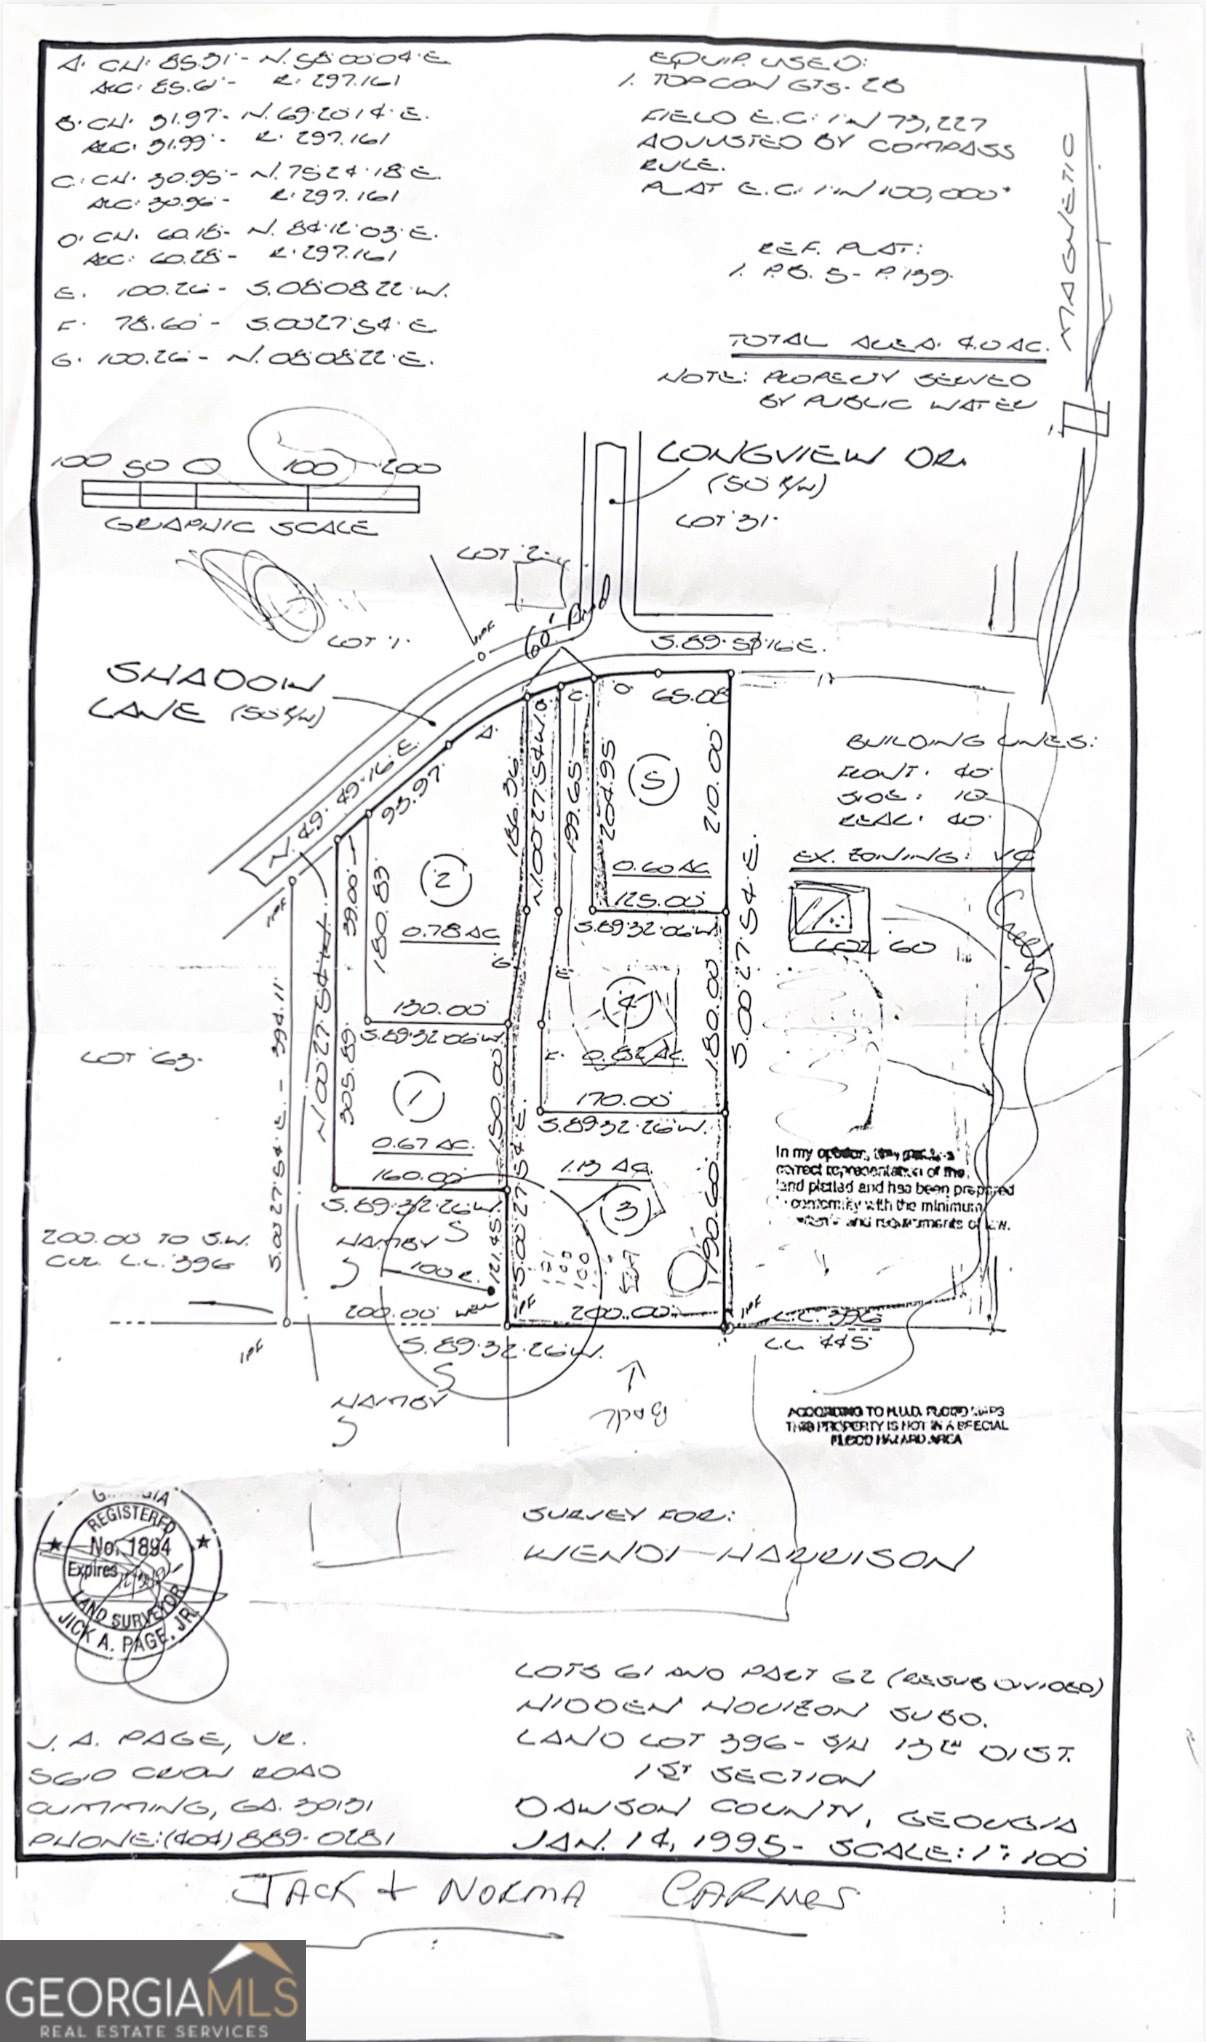 A. CH: 85.31'- N. 58 00 04 E
ARC: 85.61'- R: 297.161
B. CH. 31.97'- N. 69 20 14 E.
ARC: 31.99'- R. 297.161
C. CH. 30.95'- N. 75 24 18 E.
ARC: 30.96'- R: 297.161
D. CH. 60.18'- N. 84 12 03 E.
ARC: 60.28'- R: 297.161
E. 100.26'- S. 08 08 22 W.
F. 78.60'- S. 00 27 54 E
G. 100.26'- N. 08 08 22 E.
EQUIP. USED:
1. TOPCON GTS-2B
FIELD E.C: 1' IN 73,227
ADJUSTED BY COMPASS
RULE.
PLAT E.C: 1' IN 100,000+
REF. PLAT:
1. P.B. 5- P. 139
TOTAL AREA: 4.0 AC.
NOTE: PROPERTY SERVED
BY PUBLIC WATER
MAGNETIC
100 50 0 100 200
GRAPHIC SCALE
LONGVIEW DR.
(50' R/W)
LOT 31
LOT 1
60' Road
IPF
S. 89 58 16 E.
SHADOW
LANE (50' R/W)
N. 49 49 16 E.
A. 93.97'
C. D 65.08
186.36
N. 00 27 54 W.
199.65
204.95
5
210.00
0.60 AC
125.00
S. 89 32 06 W.
BUILDING LINES:
FRONT: 40'
SIDE: 10'
REAR: 40'
EX. ZONING: VC
LOT 60
Creek
2
0.78 AC
39.00'
180.83
130.00'
S. 89 32 06 W.
G
E
4
0.82 AC.
180.00
S. 00 27 54 E.
F.
170.00'
S. 89 32 26 W.
LOT 63
S. 00 27 54 E. - 394.11'
IPF
N. 00 27 54 W.
305.89
1
0.67 AC.
160.00'
S. 89 32 26 W.
150.00
S. 00 27 54 E.
1.13 AC.
3
190.60
121.45
In my opinion, this plat is a
correct representation of the
land platted and has been prepared
in conformity with the minimum
standards and requirements of law.
200.00 TO S.W.
COR. L.L. 396
HAMBY
S
S
100 R.
WELL
IPF
200.00'
200.00'
IPF
IPF
L.L. 396
L.L. 445
S. 89 32 26 W.
S
HAMBY
S
Back
ACCORDING TO H.U.D. FLOOD MAPS
THIS PROPERTY IS NOT IN A SPECIAL
FLOOD HAZARD AREA
GEORGIA
REGISTERED
No. 1894
Expires
LAND SURVEYOR
JICK A. PAGE, JR.
SURVEY FOR:
WENDI HARRISON
LOTS 61 AND PART 62 (RESUBDIVIDED)
HIDDEN HORIZON SUBD.
LAND LOT 396- S/H 13TH DIST.
1ST SECTION
DAWSON COUNTY, GEORGIA
JAN. 14, 1995- SCALE: 1": 100'
J. A. PAGE, JR.
5610 CROW ROAD
CUMMING, GA. 30131
PHONE: (404) 889-0281
JACK + NORMA CARNES
GEORGIAMLS
REAL ESTATE SERVICES